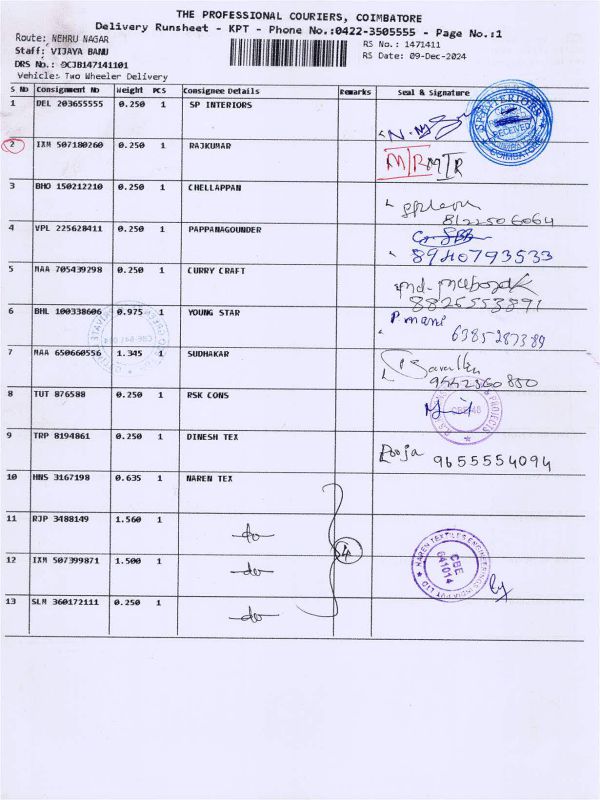 THE PROFESSIONAL COURIERS, COIMBATORE
Delivery Runsheet - KPT - Phone No.:0422-3505555 - Page No.:1
Route: NEHRU NAGAR
Staff: VIJAYA BANU
DRS No.: 0CJB147141101
Vehicle: Two Wheeler Delivery
RS No.: 1471411
RS Date: 09-Dec-2024
S No Consignment No Weight PCS Consignee Details Remarks Seal & Signature
1 DEL 203655555 0.250 1 SP INTERIORS
SP INTERIORS RECEIVED COIMBATORE
2 IXM 507180260 0.250 1 RAJKUMAR
3 BHO 150212210 0.250 1 CHELLAPPAN
8122506064
4 VPL 225628411 0.250 1 PAPPANAGOUNDER
8940793533
5 MAA 705439298 0.250 1 CURRY CRAFT
8826553891
6 BHL 100338606 0.975 1 YOUNG STAR P mani
6385287389
7 MAA 650660556 1.345 1 SUDHAKAR
8 TUT 876588 0.250 1 RSK CONS
9 TRP 8194861 0.250 1 DINESH TEX Pooja 9655554094
10 HNS 3167198 0.635 1 NAREN TEX
11 RJP 3488149 1.560 1 -do-
4
12 IXM 507399871 1.500 1 -do-
NAREN TEXTILES ENGINEERINGS INDIA PVT LTD CBE 641014
13 SLM 360172111 0.250 1 -do-